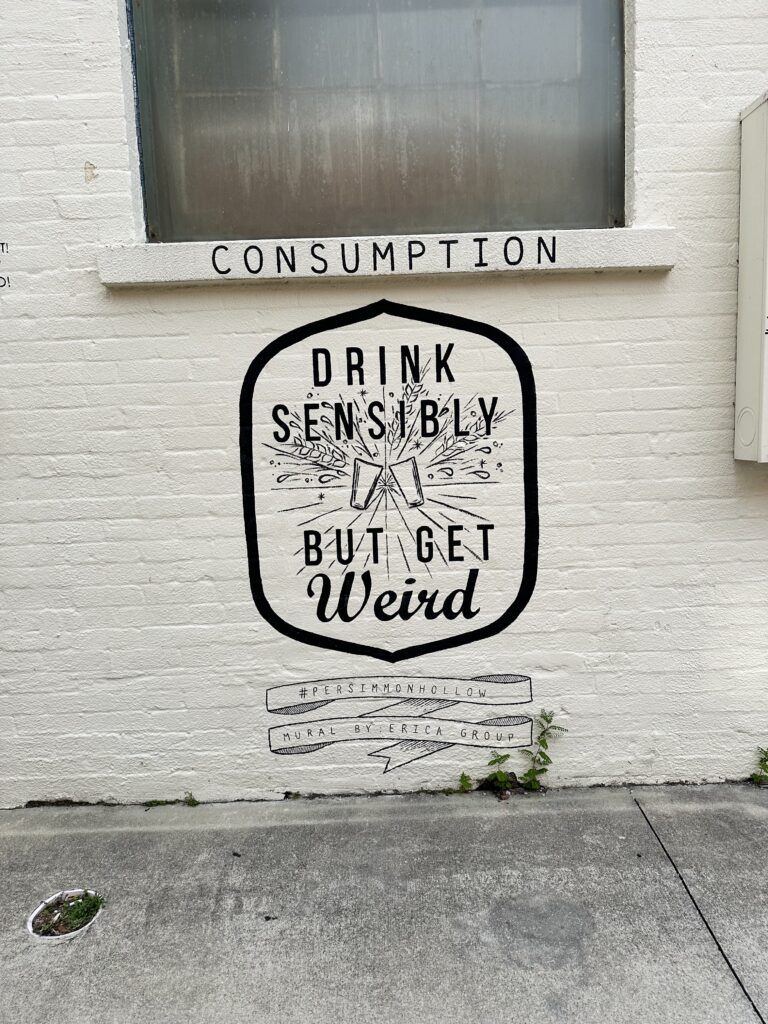 CONSUMPTION
DRINK
SENSIBLY
BUT GET
Weird
#PERSIMMONHOLLOW
MURAL BY: ERICA GROUP